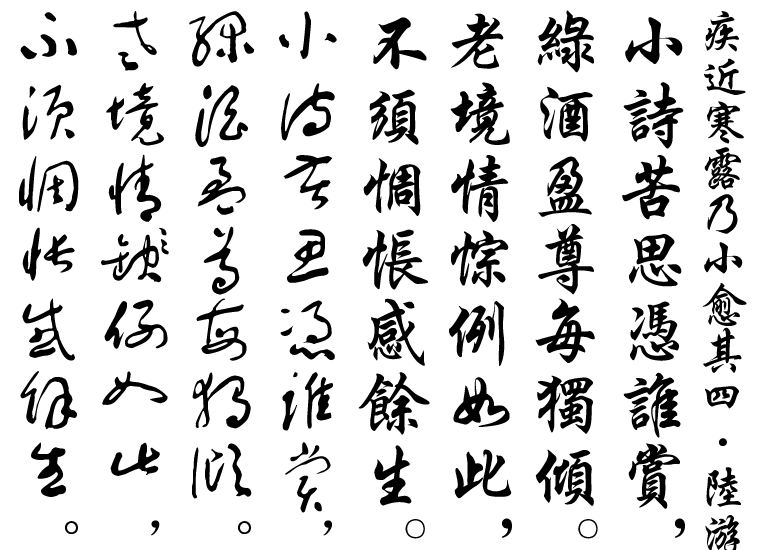 疾近寒露乃小愈其四·陸游
小詩苦思憑誰賞，
綠酒盈尊每獨傾。
老境情悰例如此，
不須惆悵感餘生。
小诗苦思凭谁赏，
绿酒盈尊每独倾。
老境情悰例如此，
不须惆怅感馀生。